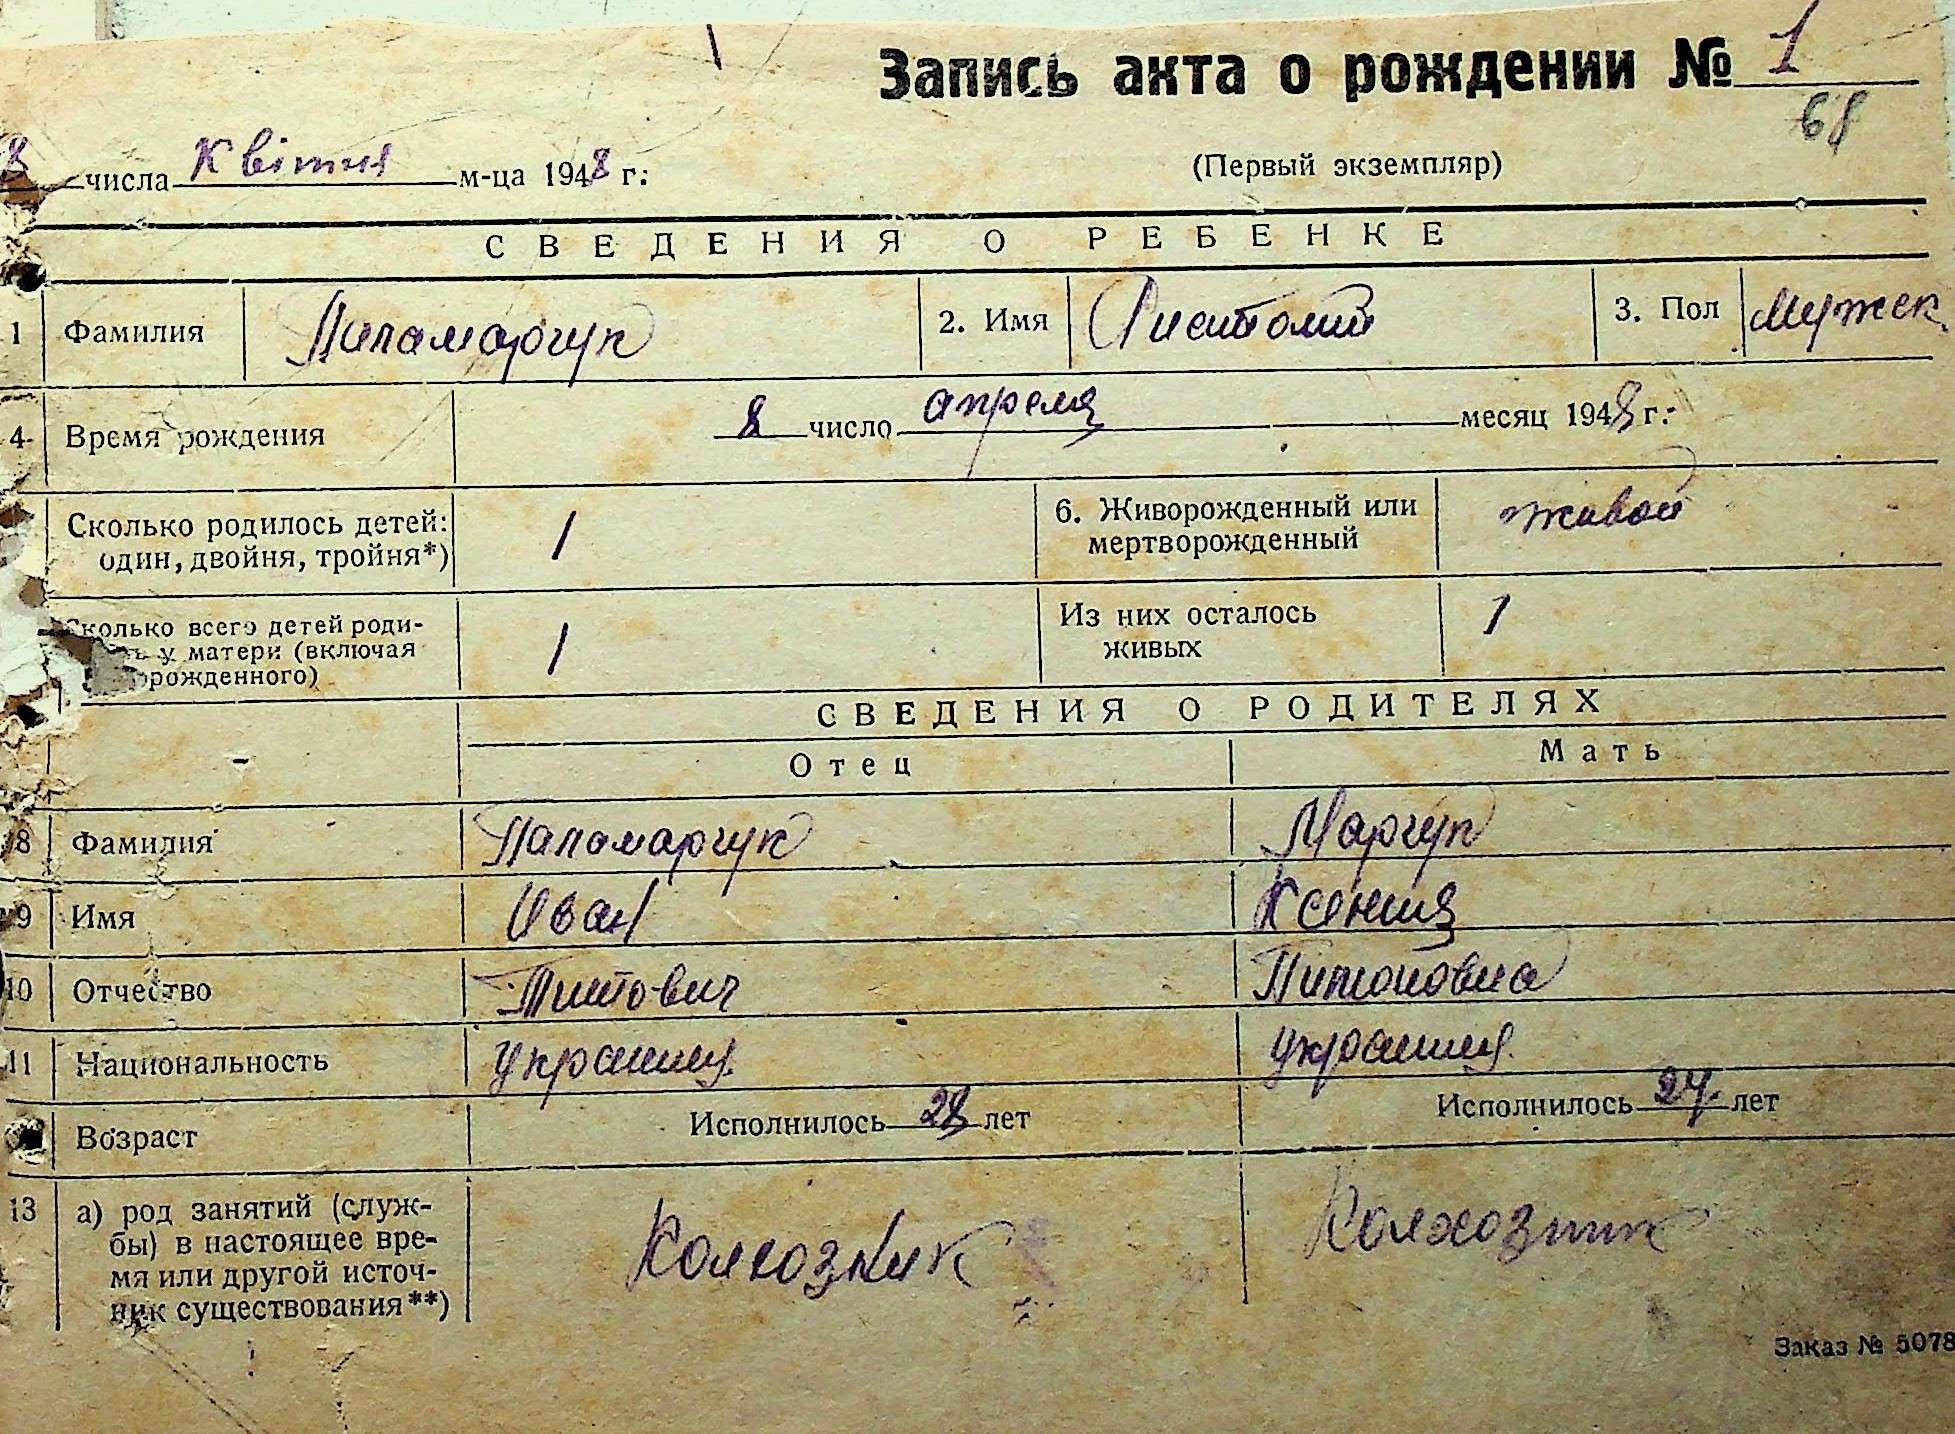 Запись акта о рождении № 1
68
8 числа Квітня м-ца 1948 г.
(Первый экземпляр)
СВЕДЕНИЯ О РЕБЕНКЕ
1 Фамилия Паламарчук 2. Имя 3. Пол Мужск.
4 Время рождения 8 число апреля месяц 1948 г.
Сколько родилось детей: 1 6. Живорожденный или живой
один, двойня, тройня*) мертворожденный
Сколько всего детей роди- 1 Из них осталось 1
у матери (включая живых
орожденного)
СВЕДЕНИЯ О РОДИТЕЛЯХ
Отец Мать
8 Фамилия Паламарчук Марчук
9 Имя Иван Ксения
10 Отчество Титович
11 Национальность
Возраст Исполнилось 28 лет Исполнилось 24 лет
13 а) род занятий (служ- Колхозник Колхозник
бы) в настоящее вре-
мя или другой источ-
ник существования**)
Заказ № 5078